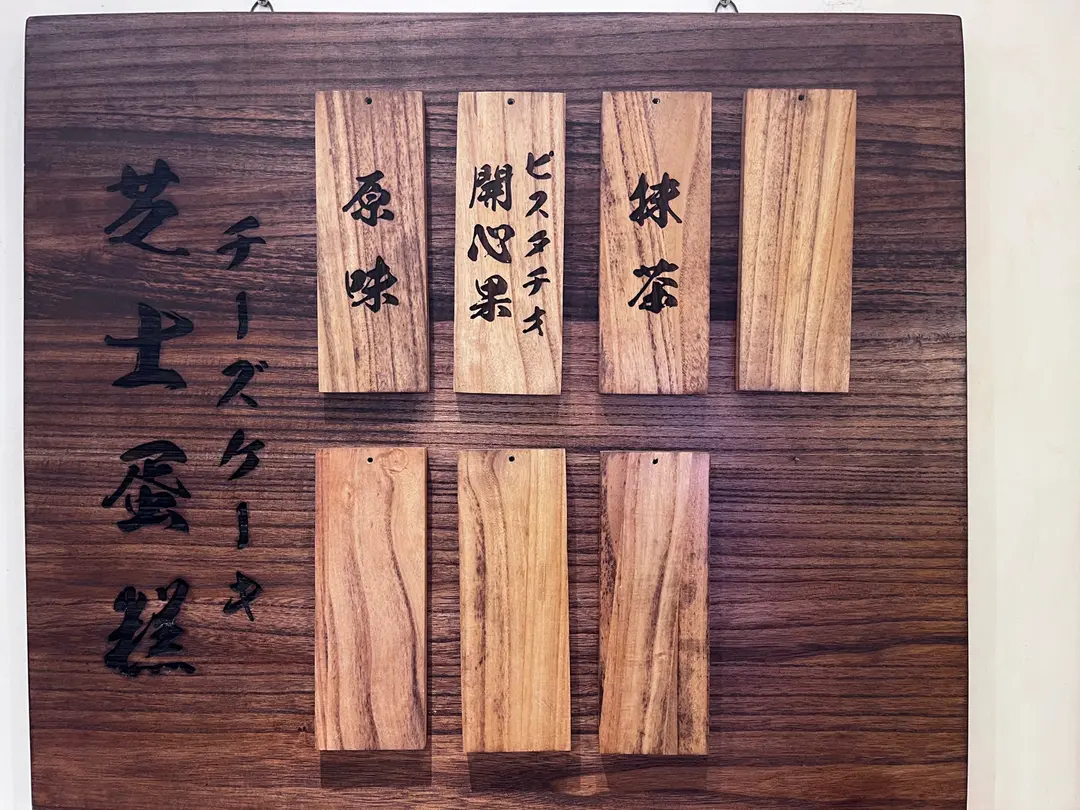 芝士蛋糕
チーズケーキ
原味
開心果
ピスタチオ
抹茶